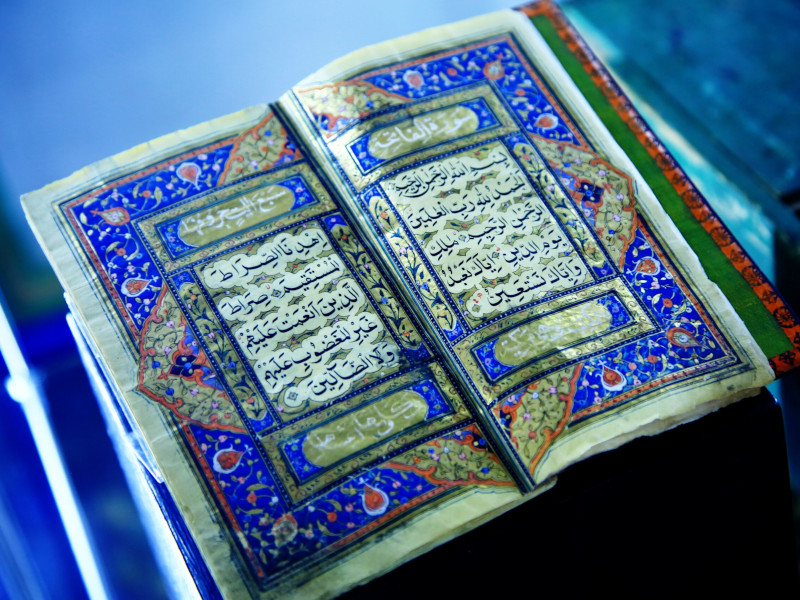 سورة الفاتحة
بِسْمِ اللهِ الرَّحْمٰنِ الرَّحِيمِ
اَلْحَمْدُ لِلهِ رَبِّ الْعٰلَمِينَ
الرَّحْمٰنِ الرَّحِيمِ مٰلِكِ
يَوْمِ الدِّينِ اِيَّاكَ نَعْبُدُ
وَاِيَّاكَ نَسْتَعِينُ
اِهْدِنَا الصِّرَاطَ
الْمُسْتَقِيمَ صِرَاطَ
الَّذِينَ اَنْعَمْتَ عَلَيْهِمْ
غَيْرِ الْمَغْضُوبِ عَلَيْهِمْ
وَلَا الضَّالِّينَ